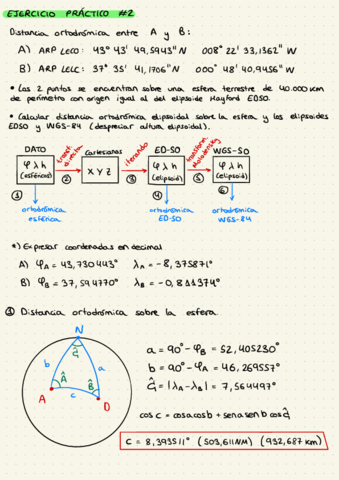 EJERCICIO PRÁCTICO #2
Distancia ortodrómica entre A y B:
A) ARP LECO: 43º 43' 49,5943'' N 008º 22' 33,1362'' W
B) ARP LELC: 37º 35' 41,1706'' N 000º 48' 40,9456'' W
* Los 2 puntos se encuentran sobre una esfera terrestre de 40.000 km
de perímetro con origen igual al del elipsoide Hayford ED50.
* Calcular distancia ortodrómica elipsoidal sobre la esfera y los elipsoides
ED50 y WGS-84 (despreciar altura elipsoidal).
DATO
φ λ h
(esféricas)
transf. directa
②
Cartesianas
X Y Z
iterando
③
ED-50
φ λ h
(elipsoid)
transform. Molodensky
⑤
WGS-50
φ λ h
(elipsoid)
①
④
⑥
ortodrómica
esférica
ortodrómica
ED-50
ortodrómica
WGS-84
*) Expresar coordenadas en decimal
A) φA = 43,730443º λA = -8,375871º
B) φB = 37,594770º λB = -0,811374º
① Distancia ortodrómica sobre la esfera
N
b
Ĝ
a
A
Â
B̂
c
D
a = 90º - φB = 52,405230º
b = 90º - φA = 46,269557º
Ĝ = |λA - λB| = 7,564497º
cos c = cos a cos b + sen a sen b cos Ĝ
c = 8,393511º (503,611 NM) (932,687 km)